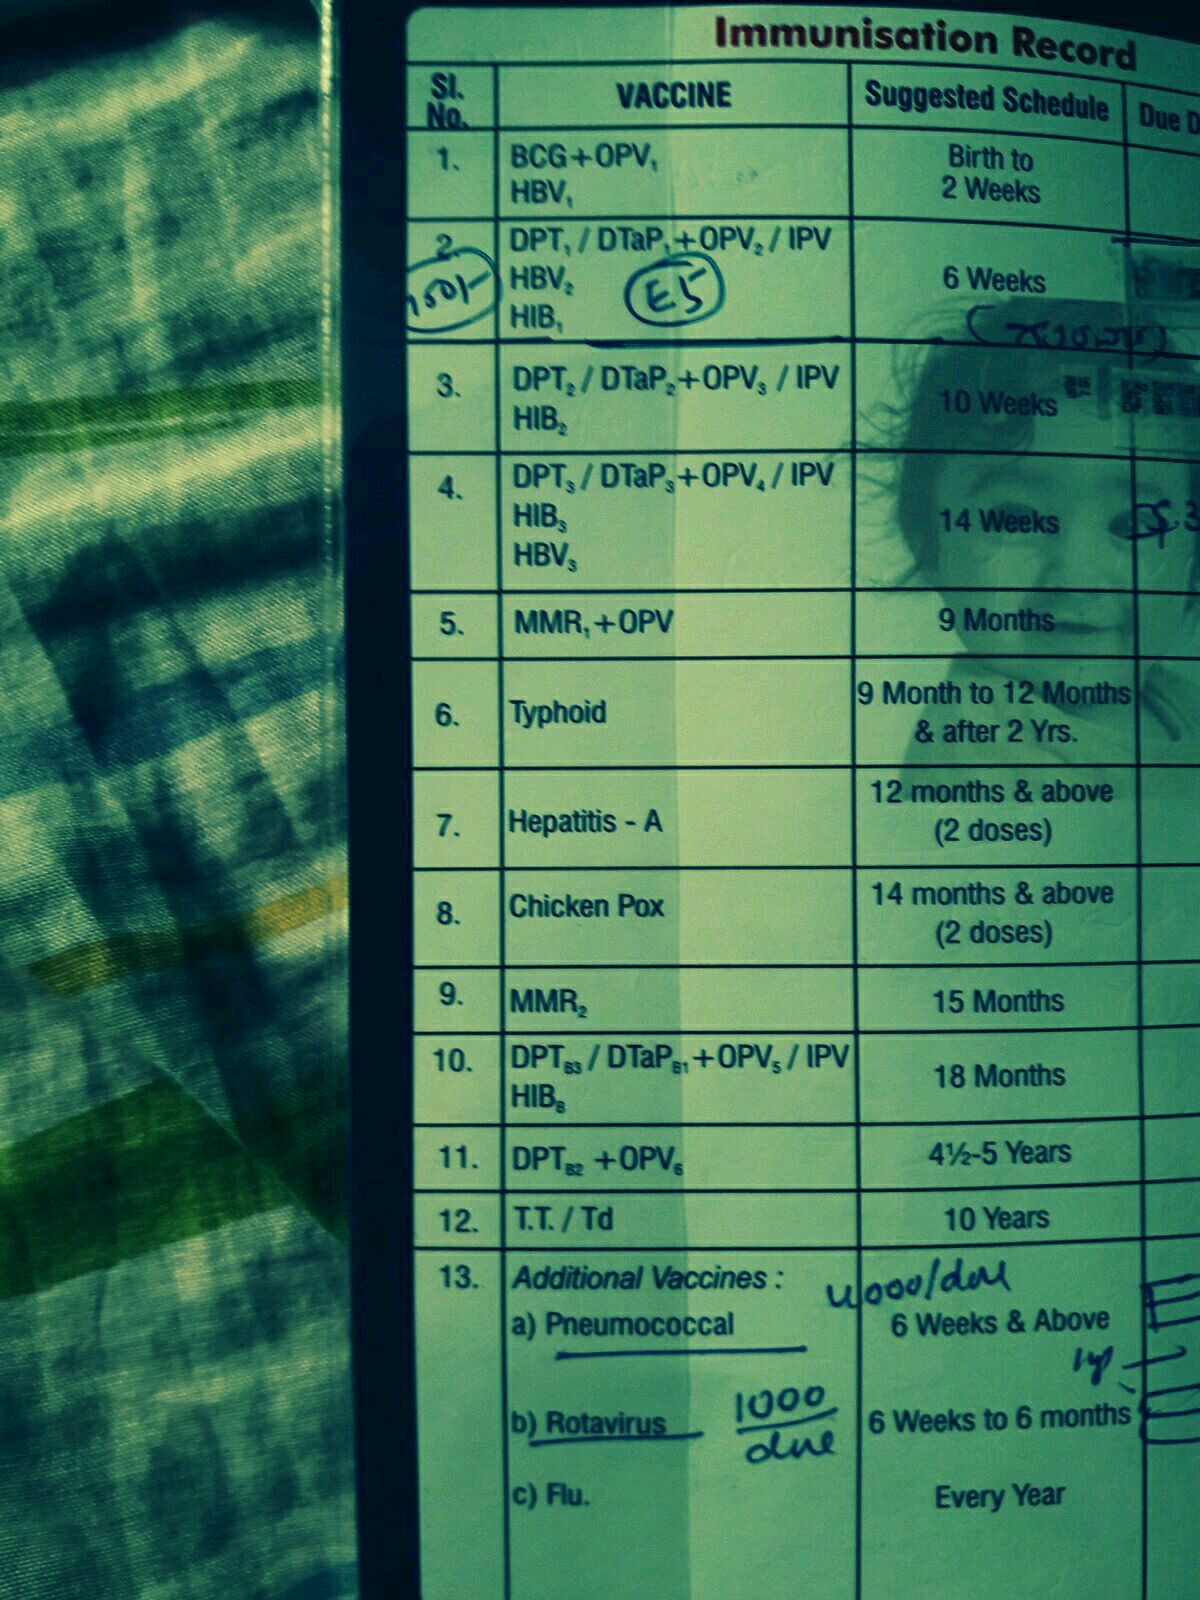 Immunisation Record
Sl. No. VACCINE Suggested Schedule Due D
1. BCG+OPV₁ Birth to
HBV₁ 2 Weeks
2. DPT₁ / DTaP₁+OPV₂ / IPV
HBV₂ E5 6 Weeks
HIB₁
3. DPT₂ / DTaP₂+OPV₃ / IPV 10 Weeks
HIB₂
4. DPT₃ / DTaP₃+OPV₄ / IPV
HIB₃ 14 Weeks
HBV₃
5. MMR₁+OPV 9 Months
6. Typhoid 9 Month to 12 Months
& after 2 Yrs.
7. Hepatitis - A 12 months & above
(2 doses)
8. Chicken Pox 14 months & above
(2 doses)
9. MMR₂ 15 Months
10. DPT B3 / DTaP B1 +OPV₅ / IPV 18 Months
HIB B
11. DPT B2 +OPV₆ 4½-5 Years
12. T.T. / Td 10 Years
13. Additional Vaccines :
a) Pneumococcal 6 Weeks & Above
b) Rotavirus 1000 6 Weeks to 6 months
c) Flu. Every Year